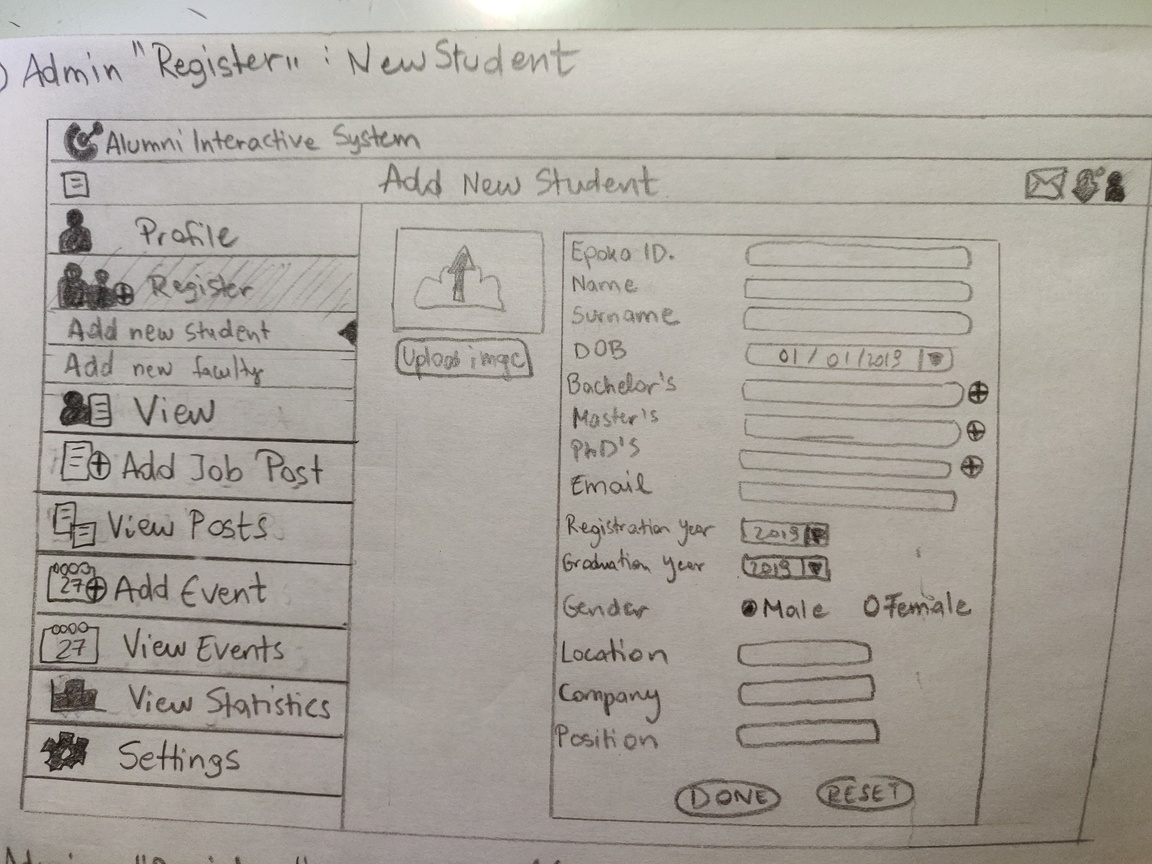 ) Admin "Register" : New Student
Alumni Interactive System
Add New Student
Profile
Register
Add new student
Add new faculty
View
Add Job Post
View Posts
27 Add Event
27 View Events
View Statistics
Settings
Upload image
Epoka ID.
Name
Surname
DOB 01/01/2019
Bachelor's
Master's
PhD'S
Email
Registration year 2019
Graduation year 2019
Gender Male Female
Location
Company
Position
DONE RESET